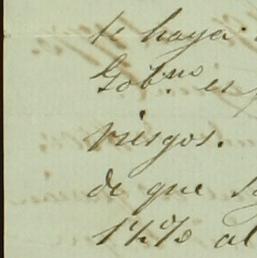 te haya
Gob.no es
riesgos.
de que
1½% al